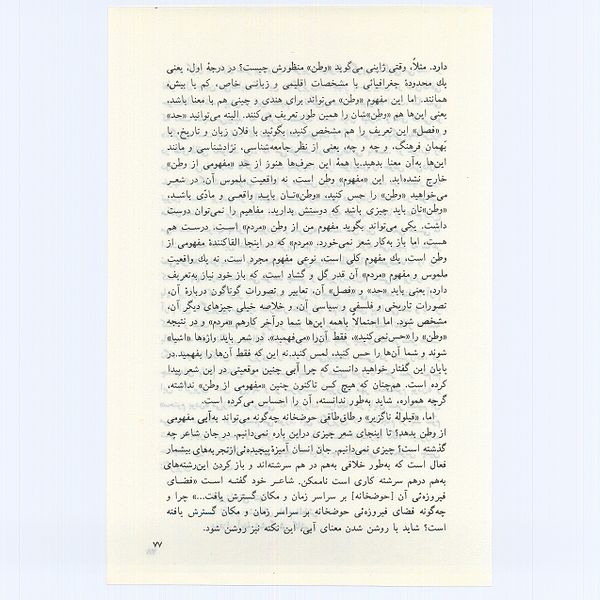 دارد. مثلاً، وقتی ژاپنی می‌گوید «وطن» منظورش چیست؟ در درجهٔ اول، یعنی
یك محدودهٔ جغرافیائی با مشخصات اقلیمی و زبانی خاص، کم یا بیش،
همانند. اما این مفهوم «وطن» می‌تواند برای هندی و چینی هم با معنا باشد،
یعنی این‌ها هم «وطن»شان را همین طور تعریف می‌کنند. البته می‌توانید «حد»
و «فصل» این تعریف را هم مشخص کنید، بگوئید با فلان زبان و تاریخ، یا
بَهمان فرهنگ، و چه و چه، یعنی از نظر جامعه‌شناسی، نژادشناسی و مانند
این‌ها به‌آن معنا بدهید. با همهٔ این حرف‌ها هنوز از حد «مفهومی از وطن»
خارج نشده‌اید، این «مفهوم» وطن است، نه واقعیت ملموس آن. در شعر
می‌خواهید «وطن» را حس کنید، «وطن»تان باید واقعی و مادّی باشد،
«وطن»تان باید چیزی باشد که دوستش بدارید. مفاهیم را نمی‌توان دوست
داشت. یکی می‌تواند بگوید مفهوم من از وطن «مردم» است. درست هم
هست، اما باز به‌کار شعر نمی‌خورد. «مردم» که در اینجا القاکنندهٔ مفهومی از
وطن است، یك مفهوم کلی است، نوعی مفهوم مجرد است، نه یك واقعیتِ
ملموس و مفهوم «مردم» آن قدر گل و گشاد است، که باز خود نیاز به‌تعریف
دارد، یعنی باید «حد» و «فصل» آن، تعابیر و تصورات گوناگون دربارهٔ آن،
تصورات تاریخی و فلسفی و سیاسی آن، و خلاصه خیلی چیزهای دیگر آن،
مشخص شود. اما احتمالاً باهمه این‌ها شما درآخر کارهم «مردم» و در نتیجه
«وطن» را «حس‌نمی‌کنید»، فقط آن‌را «می‌فهمید». در شعر باید واژه‌ها «اشیا»
شوند و شما آن‌ها را حس کنید، لمس کنید. نه این که فقط آن‌ها را بفهمید. در
پایان این گفتار خواهید دانست که چرا آبی چنین موقعیتی در این شعر پیدا
کرده است. همچنان که هیچ کس تاکنون چنین «مفهومی از وطن» نداشته،
گرچه همواره، شاید به‌طور ندانسته، آن را احساس می‌کرده است.
اما، «قیلولهٔ ناگزیر» و طاق‌طاقی حوضخانه چه‌گونه می‌تواند به‌آبی مفهومی
از وطن بدهد؟ تا اینجای شعر چیزی دراین باره نمی‌دانیم. در جان شاعر چه
گذشته است؟ چیزی نمی‌دانیم. جان انسان آمیزهٔ پیچیده‌ئی ازتجربه‌های بیشمار
فعال است که به‌طور خلاقی به‌هم در هم سرشته‌اند و باز کردن این‌رشته‌های
به‌هم درهم سرشته کاری است ناممکن. شاعـر خود گفتـه است «فضـای
فیروزه‌ئی آن [حوضخانه] بر سراسر زمان و مکان گسترش یافت...» چرا و
چه‌گونه فضای فیروزه‌ئی حوضخانه بر سراسر زمان و مکان گسترش یافته
است؟ شاید با روشن شدن معنای آبی، این نکته نیز روشن شود.
۷۷